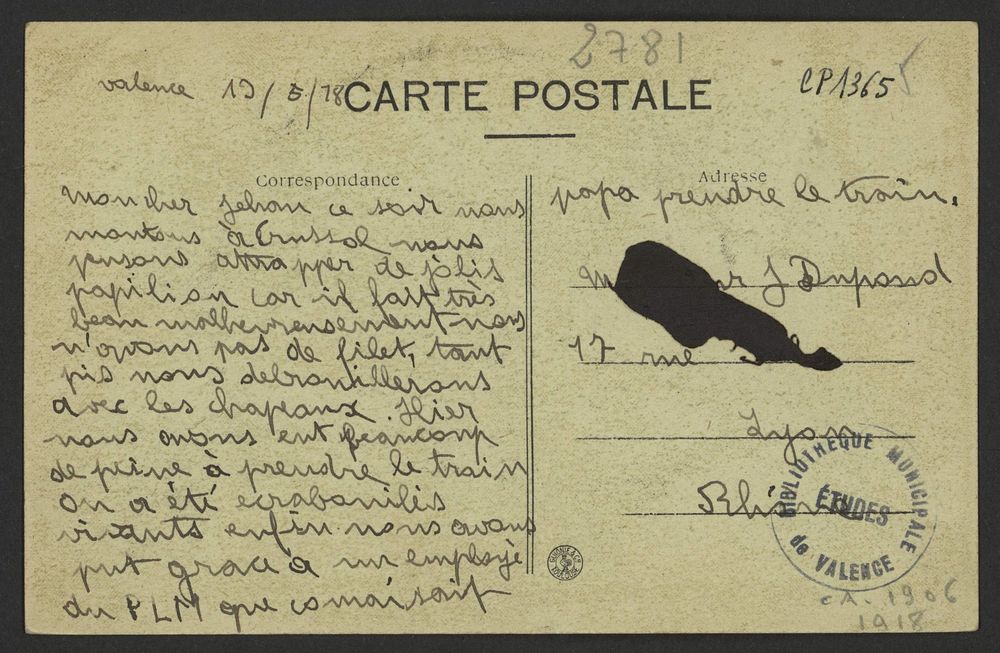 2781
valence 19/5/18
CARTE POSTALE
CP1365
Correspondance
Mon cher Jehan ce soir nous
montons à Crussol nous
pensons attrapper de jolis
papilion car il fait très
beau malheureusement nous
n'avons pas de filet, tant
pis nous debrouillerons
avec les chapeaux. Hier
nous avons ent beaucoup
de peine à prendre le train
on a été ecrabouillés
vivants enfin nous avons
put grace a un employé
du PLM que connaisait
Adresse
papa prendre le train.
J Dupond
17 rue
Lyon
Rhône
BIBLIOTHEQUE MUNICIPALE
ÉTUDES
de VALENCE
CA. 1906
1918